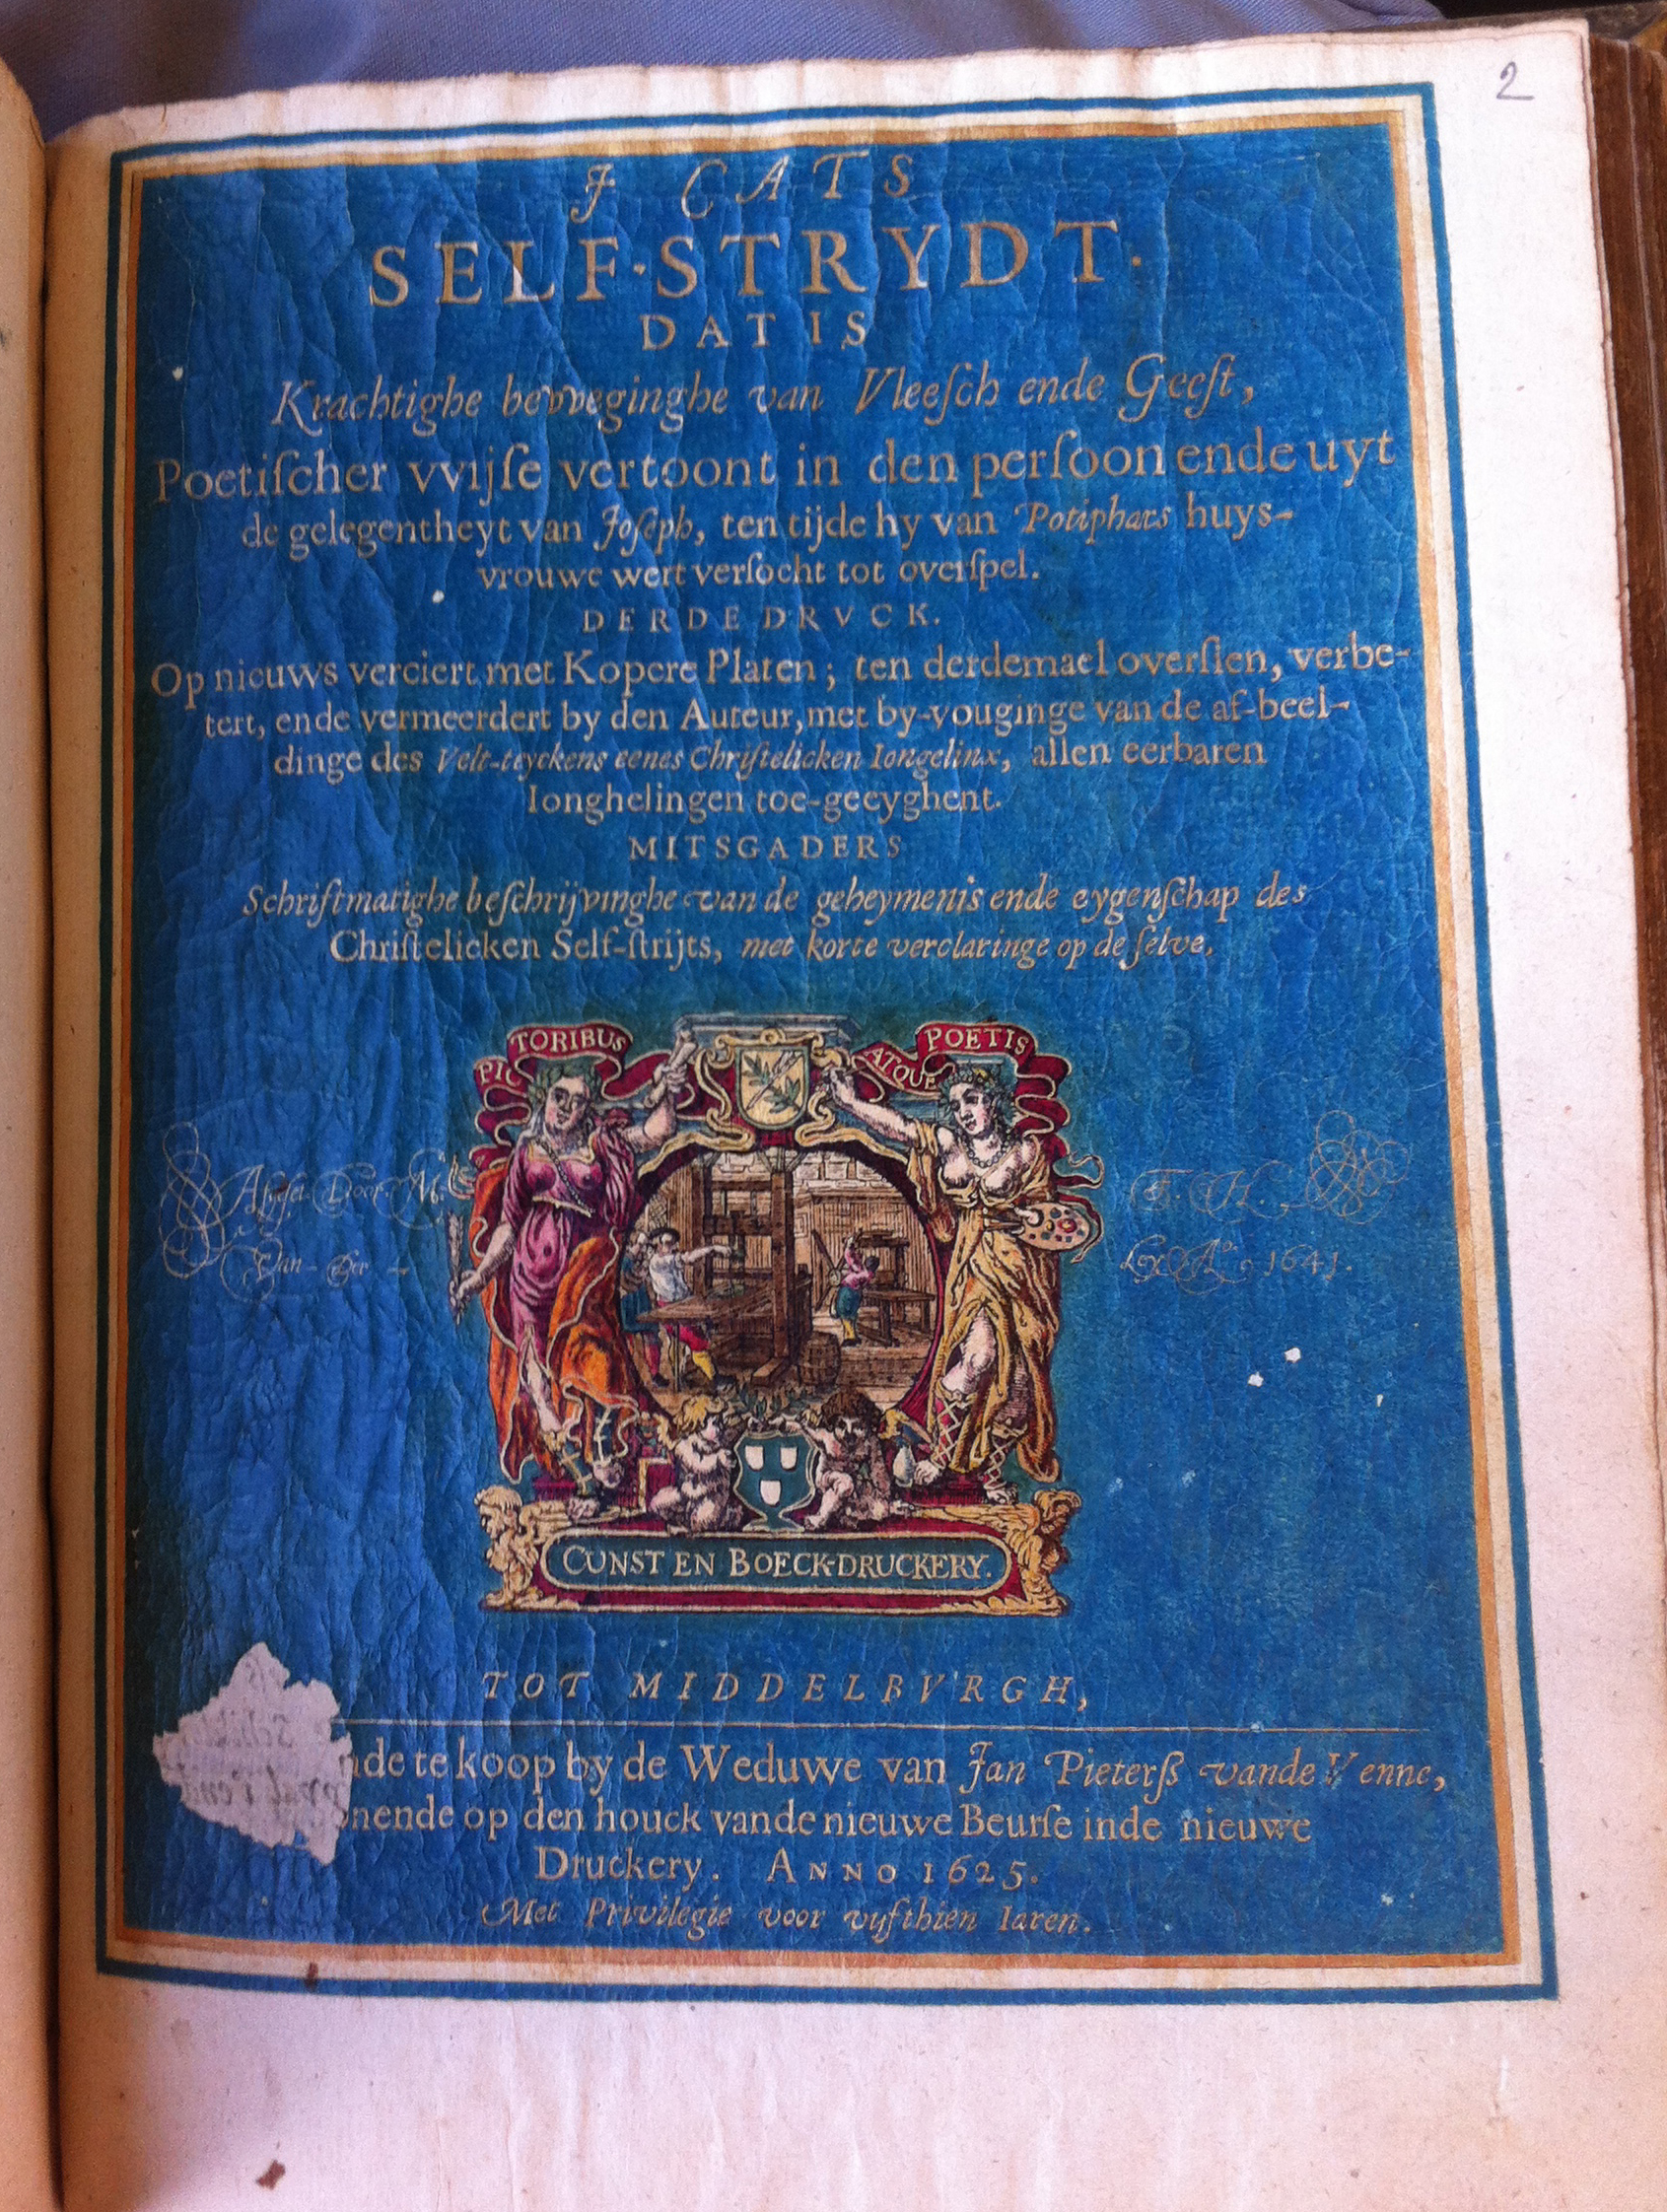 2
J CATS
SELF-STRYDT.
DAT IS
Krachtighe bevveginghe van Vleeſch ende Geeſt,
Poetiſcher vvijſe vertoont in den perſoon ende uyt
de gelegentheyt van Joſeph, ten tijde hy van Potiphars huys-
vrouwe wert verſocht tot overſpel.
DERDE DRVCK.
Op nieuws verciert met Kopere Platen; ten derdemael overſien, verbe-
tert, ende vermeerdert by den Auteur, met by-vouginge van de af-beel-
dinge des Velt-teyckens eenes Chriſtelicken Iongelinx, allen eerbaren
Ionghelingen toe-geeyghent.
MITSGADERS
Schriftmatighe beſchrijvinghe van de geheymenis ende eygenſchap des
Chriſtelicken Self-ſtrijts, met korte verclaringe op de ſelve.
PICTORIBUS ATQUE POETIS
Door M. E. H.
Van - Der - Ley A.º 1641.
CUNST EN BOECK-DRUCKERY.
TOT MIDDELBVRGH,
nde te koop by de Weduwe van Jan Pieterſz vande Venne,
nende op den houck vande nieuwe Beurſe inde nieuwe
Druckery. ANNO 1625.
Met Privilegie voor vijfthien Iaren.